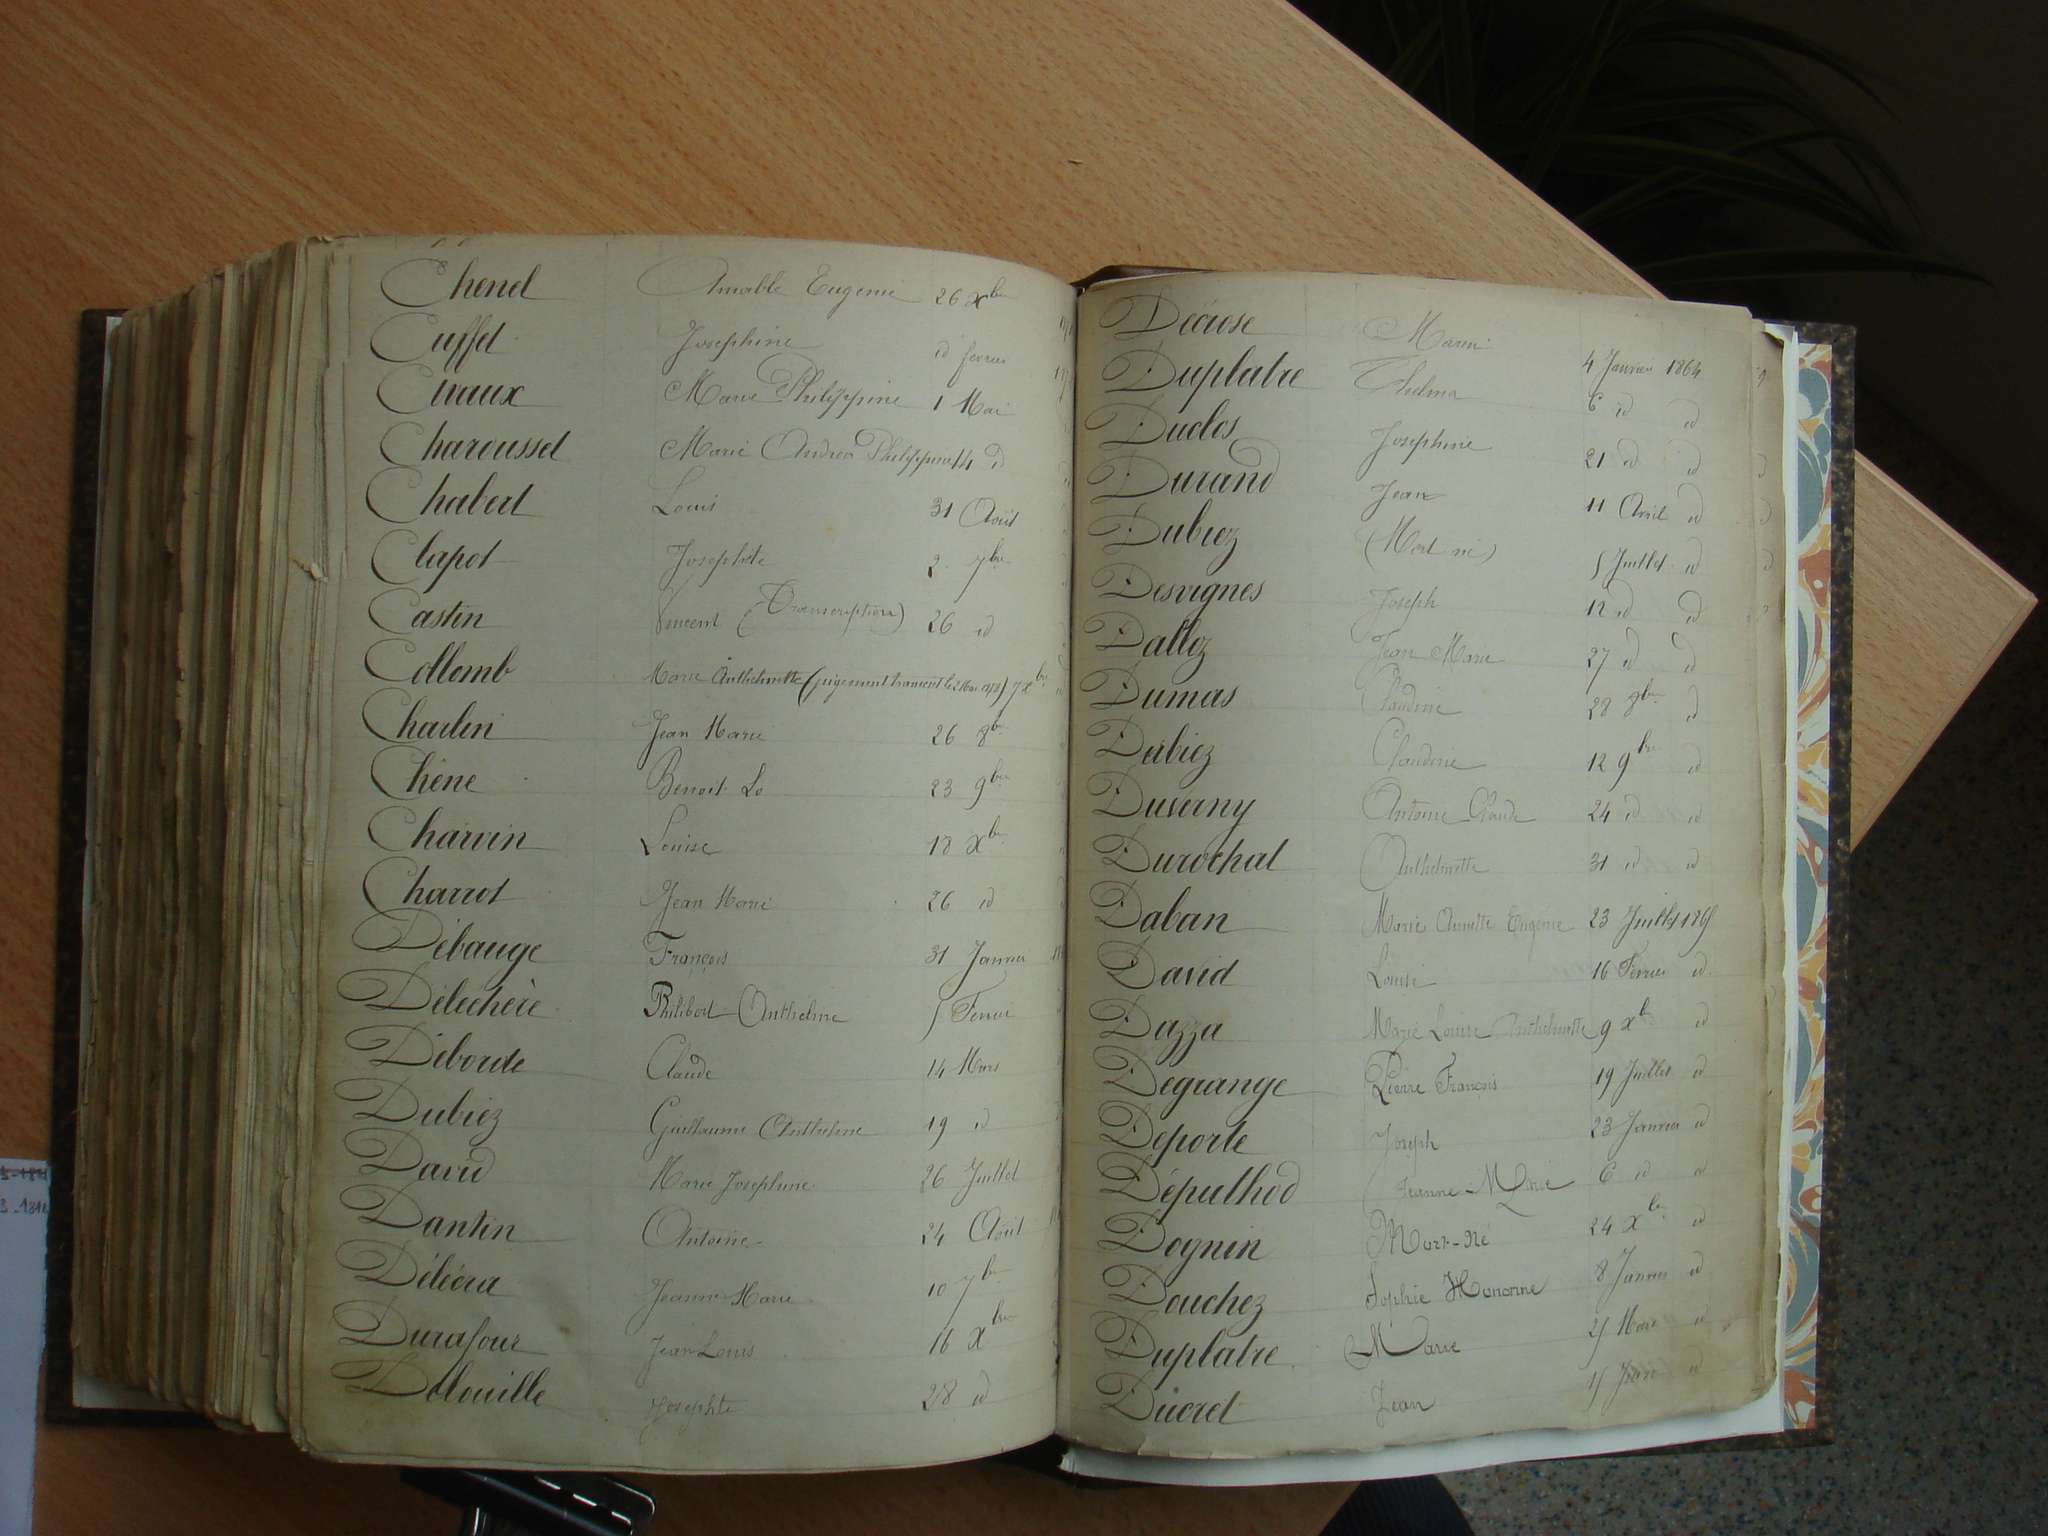 Chenel Amable Eugenie 26 Xbre
Cuffet Josephine id fevrier
Curaux Marie Philippine 1 Mai
Charousset Marie Andréa Philippine 14 id
Chabert Louis 31 Août
Clapot Josephte 2 7bre
Castin Vincent (Transcription) 26 id
Collomb Marie Anthelmette (jugement transcrit le 2 Mai 1872) 7 Xbre
Charlin Jean Marie 26 8bre
Chêne Benoit 23 9bre
Charvin Louise 18 Xbre
Charrot Jean Marie 26 id
Débauge François 31 Janvier
Déléchère Philibert Anthelme 5 Fevrier
Déborde Claude 14 Mars
Dubiez Guillaume Anthelme 19 id
David Marie Josephine 26 Juillet
Dantin Antoine 24 Août
Délécra Jeanne Marie 10 7bre
Durafour Jean Louis 16 Xbre
Dolouille Josephte 28 id
Décrose Marin 4 Janvier 1864
Duplatre Thelma 6 id id
Duclos Josephine 21 id id
Durand Jean 11 Avril id
Dubiez (Mort né) 5 Juillet id
Desvignes Joseph 12 id id
Dalloz Jean Marie 27 id id
Dumas Claudine 28 8bre id
Dubiez Claudine 12 9bre id
Duverny Antoine Claude 24 id id
Durochat Anthelmette 31 id id
Daban Marie Annette Eugénie 23 Juillet 1865
David Louise 16 Fevrier id
Dazza Marie Louise Anthelmette 9 Xb id
Degrange Pierre François 19 Juillet id
Deporte Joseph 23 Janvier id
Dépulhod Jeanne-Marie 6 id id
Dognin Mort-Né 24 Xbre id
Douchez Sophie Honorine 8 Janvier id
Duplatre Marie 25 Mars id
Ducret Jean 15 id